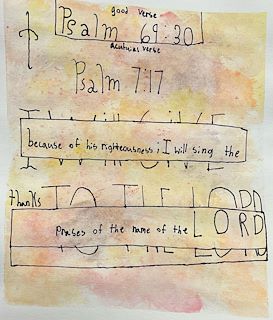 good verse
Psalm 69:30
Psalm 7:17
I WILL GIVE
because of his righteousness; I will sing the
thanks TO THE LORD
Praises of the name of the LORD